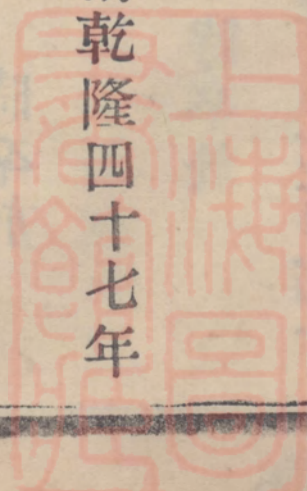 乾隆四十七年
上海圖
書館藏